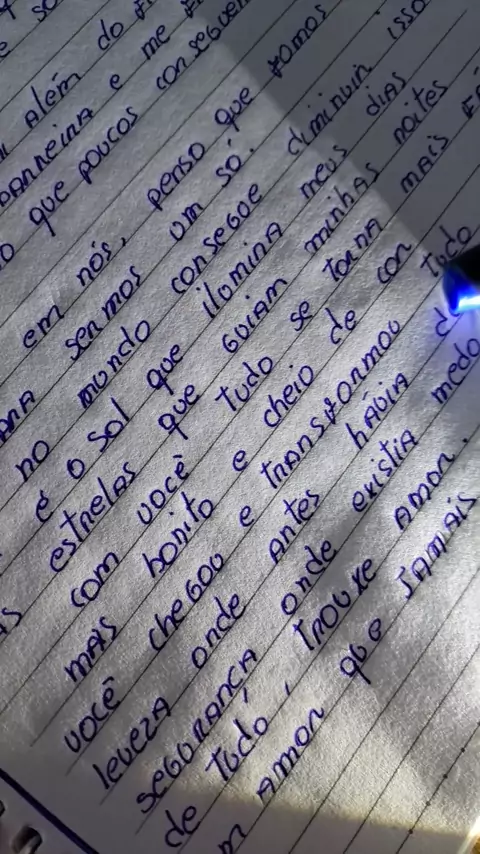 além do
e me
que poucos conseguem
em nós, penso que fomos
sermos um só.
no mundo consegue diminuir isso
é o sol que ilumina meus dias
estrelas que guiam minhas noites
com você tudo se torna mais
mais bonito e cheio de con
você chegou e transformou tudo
leveza onde antes hávia
segurança onde existia medo
de tudo, trouxe amor.
amor que jamais